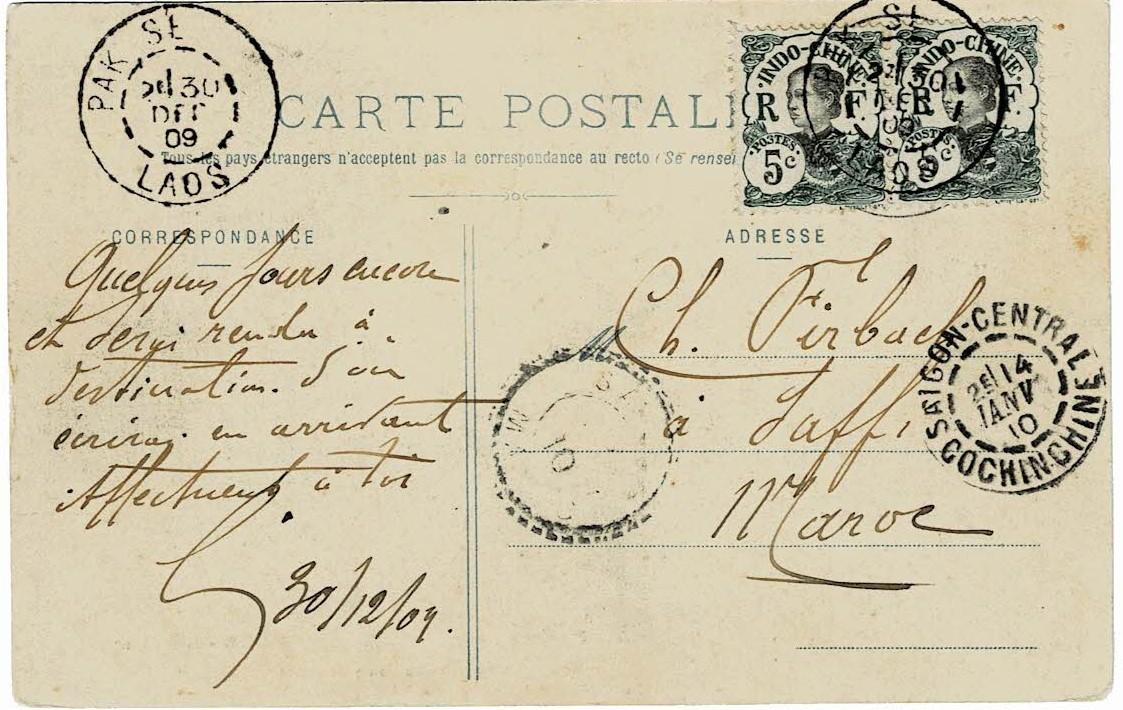 PAK SE
2E 30
DEC
09
LAOS
CARTE POSTAL
Tous les pays étrangers n'acceptent pas la correspondance au recto (Se rensei
INDO-CHINE
R F
POSTES
5c
INDO-CHINE
R F
POSTES
5c
SE
LAOS
CORRESPONDANCE
ADRESSE
Quelques jours encore
et serai rendu à
destination. d'où
écrirai en arrivant
Affectueux à toi
30/12/09.
Ch. Firbach
à Saffi
Maroc
SAIGON-CENTRAL
2E 14
JANV
10
COCHINCHINE
10